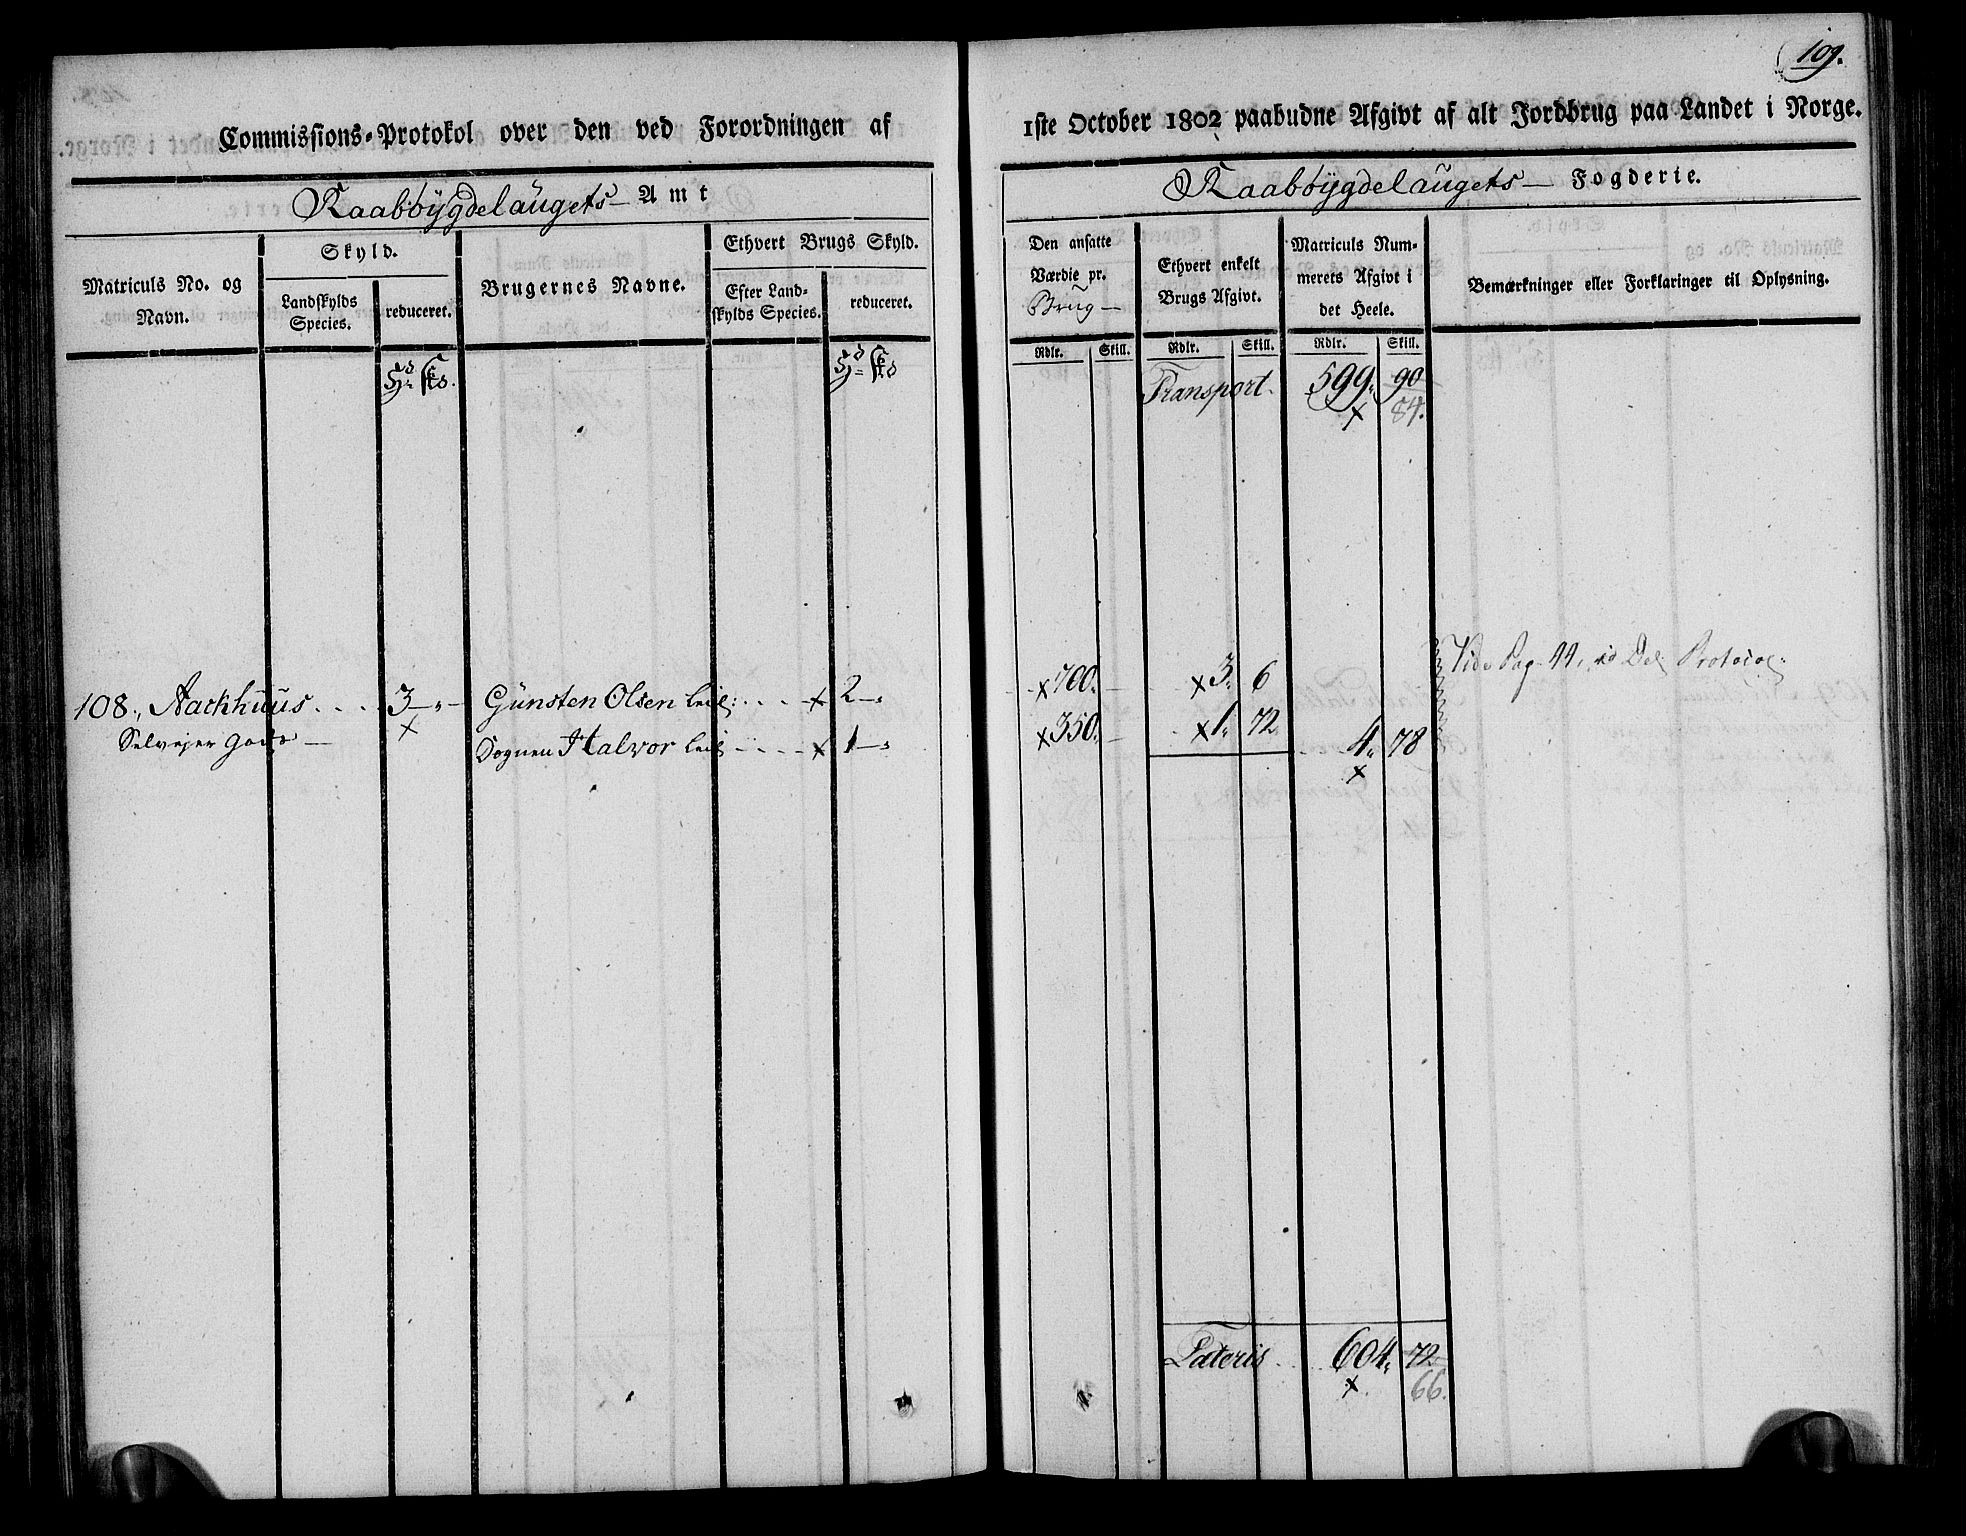 109.
Commissions-Protokol over den ved Forordningen af
1ste October 1802 paabudne Afgivt af alt Jordbrug paa Landet i Norge.
Raabøygdelaugets Amt
Raabøygdelaugets Fogderie.
Matriculs No. og Navn.
Skyld.
Landskylds Species.
reduceret.
Brugernes Navne.
Ethvert Brugs Skyld.
Efter Landskylds Species.
reduceret.
Den ansatte Værdie pr. Brug
Ethvert enkelt Brugs Afgivt.
Matriculs Nummerets Afgivt i det Heele.
Bemærkninger eller Forklaringer til Oplysning.
Rdlr. Skill. Rdlr. Skill. Rdlr. Skill.
Transport 599. 90
x 84.
Vide Pag. 44, Del. Protocol.
108., Aackhuus .... 3 Günsten Olsen Leil: .... x 2 x 700. x 3. 6
Selvejer Gods x Sognen Halvor Leil .... x 1 x 350. x 1. 72. 4. 78
x
Lateris 604. 72
x. 66.